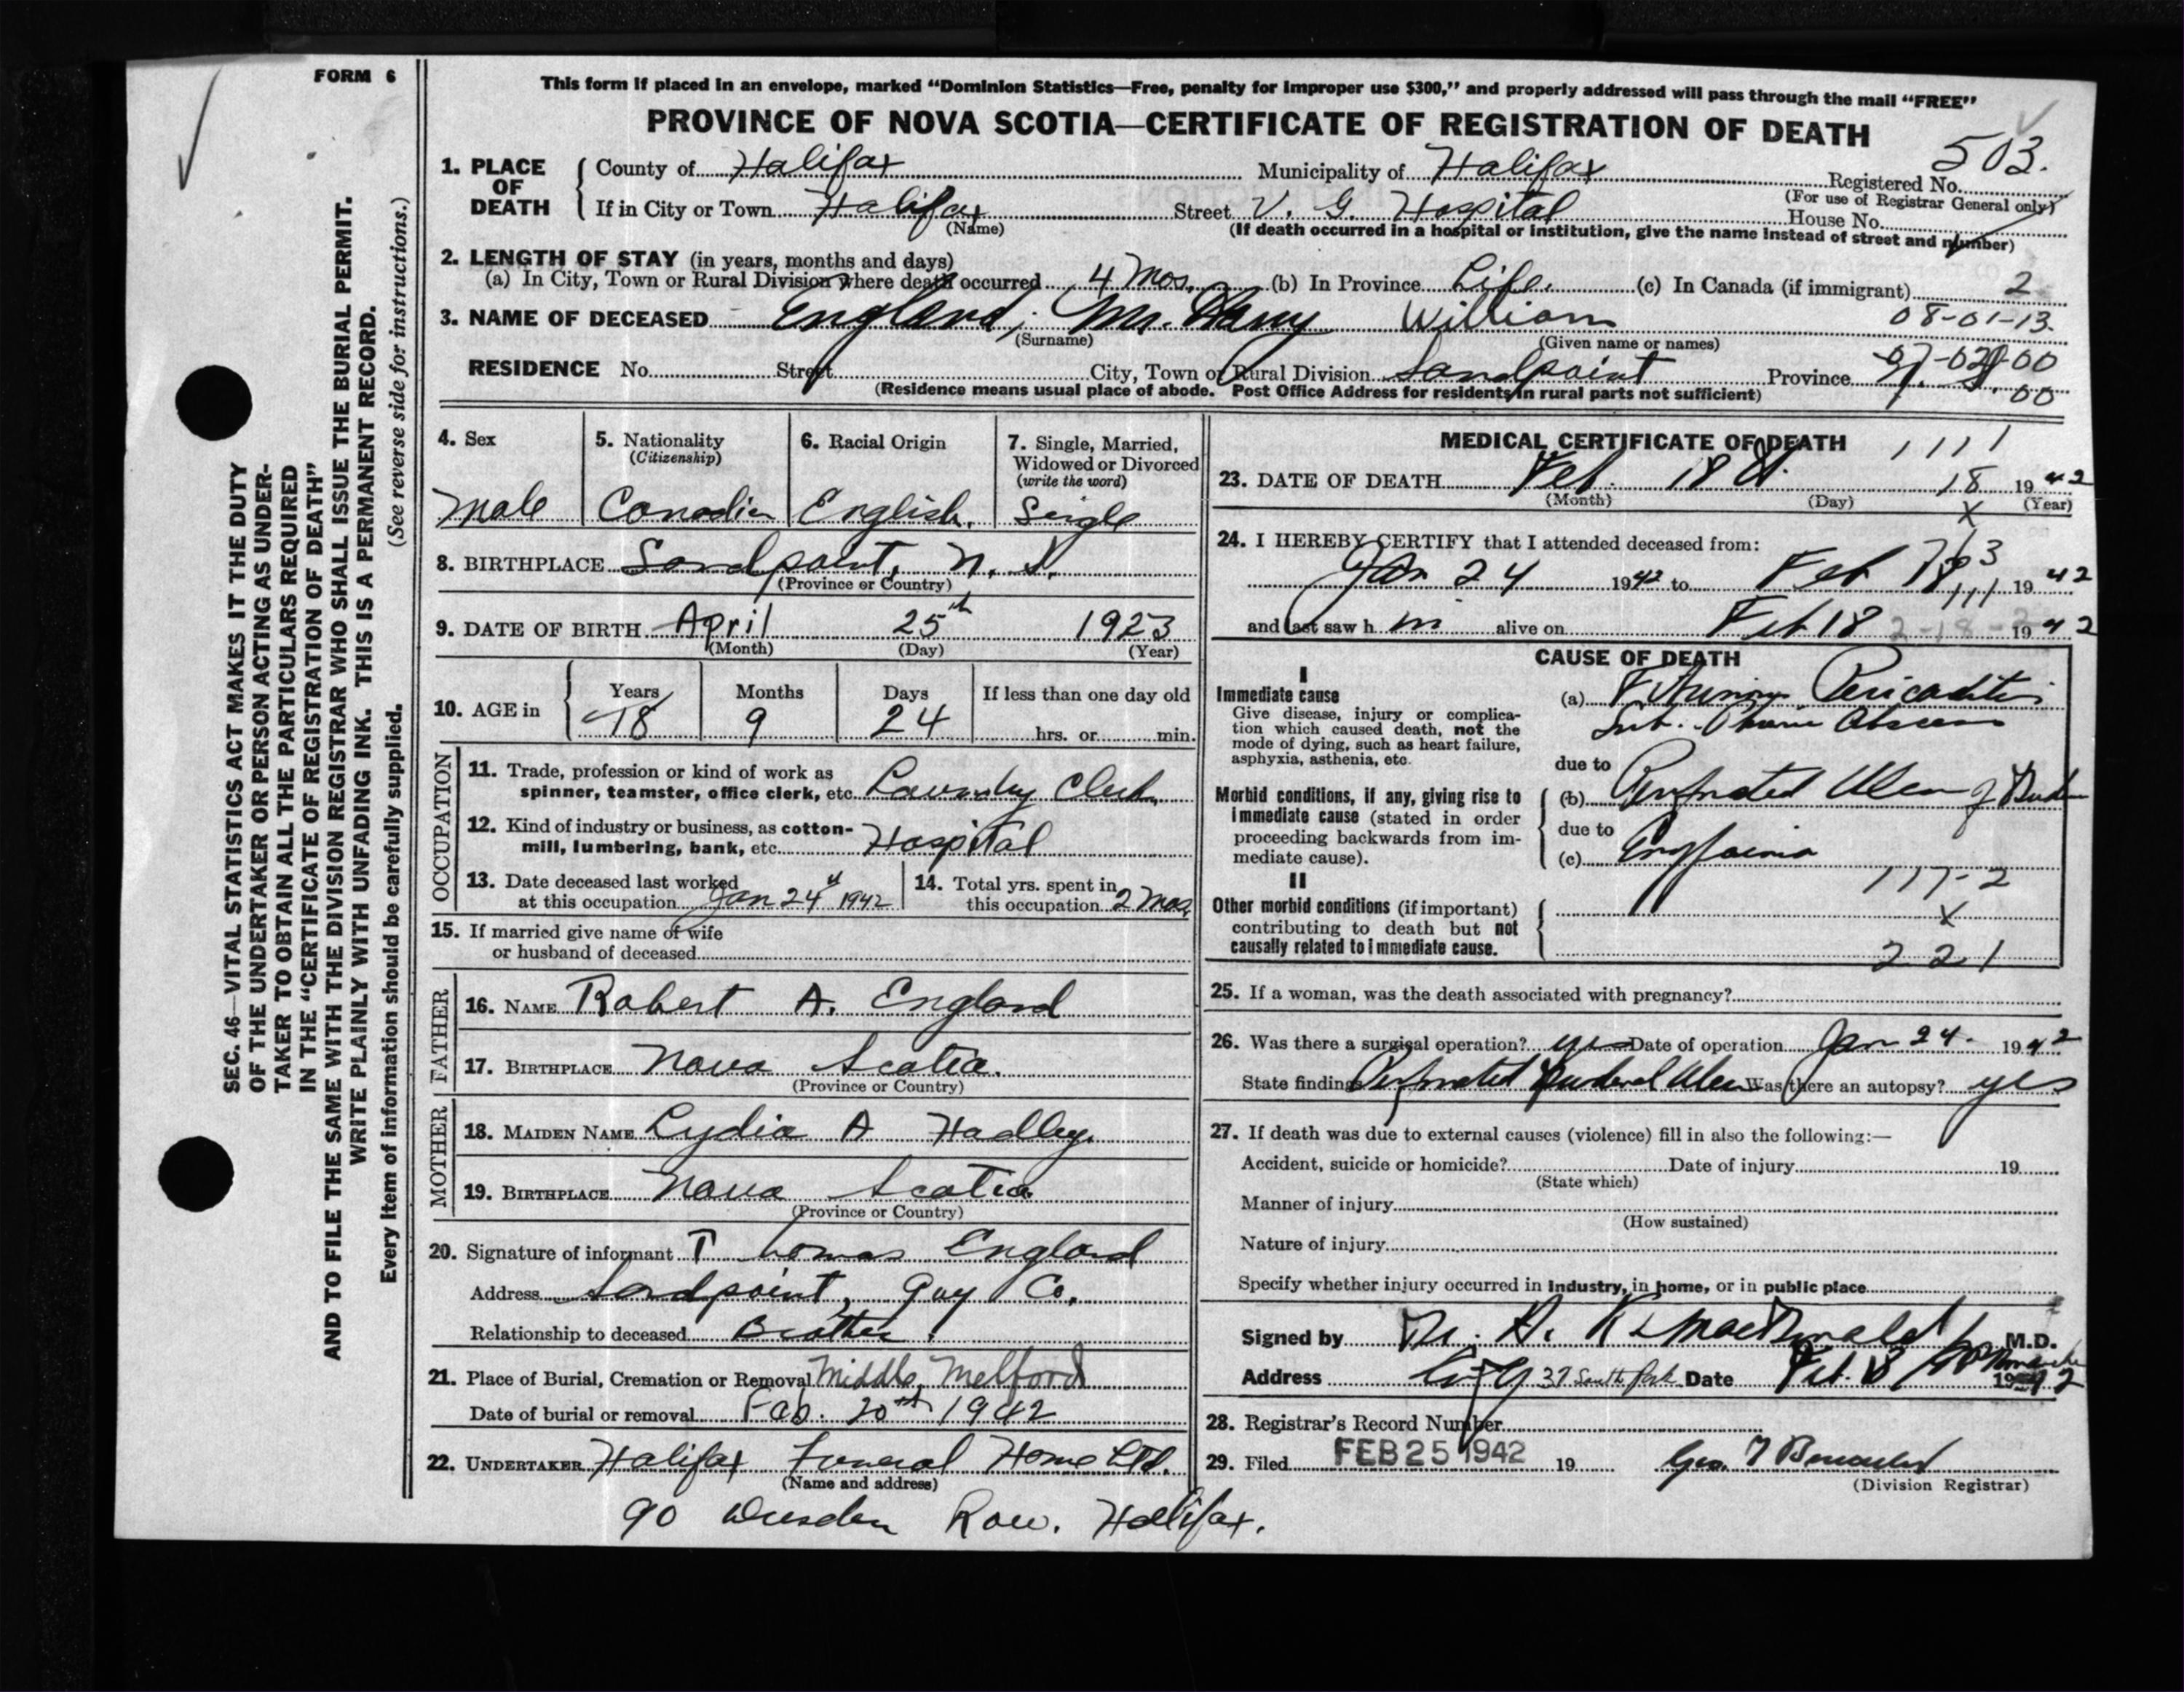 FORM 6
This form if placed in an envelope, marked “Dominion Statistics—Free, penalty for improper use $300,” and properly addressed will pass through the mail “FREE”
PROVINCE OF NOVA SCOTIA—CERTIFICATE OF REGISTRATION OF DEATH
503.
1. PLACE OF DEATH County of Halifax Municipality of Halifax Registered No.
(For use of Registrar General only)
If in City or Town Halifax Street V. G. Hospital House No.
(Name) (If death occurred in a hospital or institution, give the name instead of street and number)
2. LENGTH OF STAY (in years, months and days)
(a) In City, Town or Rural Division where death occurred 4 Mos. (b) In Province Life. (c) In Canada (if immigrant) 2
3. NAME OF DECEASED England, Mr. Harry William 08-01-13.
(Surname) (Given name or names)
RESIDENCE No. Street City, Town or Rural Division Sandpoint Province N. S.
00
(Residence means usual place of abode. Post Office Address for residents in rural parts not sufficient)
4. Sex 5. Nationality 6. Racial Origin 7. Single, Married,
(Citizenship) Widowed or Divorced
(write the word)
Male Canadian English. Single
8. BIRTHPLACE Sandpoint, N. S.
(Province or Country)
9. DATE OF BIRTH April 25th 1923
(Month) (Day) (Year)
10. AGE in Years Months Days If less than one day old
18 9 24 hrs. or min.
OCCUPATION
11. Trade, profession or kind of work as
spinner, teamster, office clerk, etc. Laundry Clerk.
12. Kind of industry or business, as cotton-
mill, lumbering, bank, etc. Hospital
13. Date deceased last worked
at this occupation Jan 24th 1942
14. Total yrs. spent in
this occupation 2 Mos.
15. If married give name of wife
or husband of deceased
FATHER
16. NAME Robert A. England
17. BIRTHPLACE Nova Scotia.
(Province or Country)
MOTHER
18. MAIDEN NAME Lydia A Hadley.
19. BIRTHPLACE Nova Scotia
(Province or Country)
20. Signature of informant Thomas England
Address Sandpoint, Guy Co.
Relationship to deceased Brother.
21. Place of Burial, Cremation or Removal Middle Melford
Date of burial or removal Feb. 20th 1942
22. UNDERTAKER Halifax Funeral Home Ltd.
(Name and address)
90 Dresden Row. Halifax.
MEDICAL CERTIFICATE OF DEATH
1111
23. DATE OF DEATH Feb. 18th. 18 1942
(Month) (Day) (Year)
X
24. I HEREBY CERTIFY that I attended deceased from:
Jan 24 1942 to Feb 18 1942
111
and last saw h im alive on Feb 18 1942
CAUSE OF DEATH
I
Immediate cause
Give disease, injury or complica-
tion which caused death, not the
mode of dying, such as heart failure,
asphyxia, asthenia, etc.
(a) Fibrinous Pericarditis
Sub-Phrenic Abscess
due to
Morbid conditions, if any, giving rise to
immediate cause (stated in order
proceeding backwards from im-
mediate cause).
(b) Perforated Ulcer of
due to
(c) Empyema
117-2
II
Other morbid conditions (if important)
contributing to death but not
causally related to immediate cause.
X
221
25. If a woman, was the death associated with pregnancy?
26. Was there a surgical operation? yes Date of operation Jan 24. 1942
State findings Perforated Duodenal Ulcer Was there an autopsy? yes
27. If death was due to external causes (violence) fill in also the following:—
Accident, suicide or homicide? Date of injury 19
(State which)
Manner of injury
(How sustained)
Nature of injury
Specify whether injury occurred in industry, in home, or in public place
Signed by Dr. H. K. MacDonald M.D.
Address City 37 South Park Date Feb. 18 1942
28. Registrar's Record Number
29. Filed FEB 25 1942 19
(Division Registrar)
SEC. 46—VITAL STATISTICS ACT MAKES IT THE DUTY
OF THE UNDERTAKER OR PERSON ACTING AS UNDER-
TAKER TO OBTAIN ALL THE PARTICULARS REQUIRED
IN THE “CERTIFICATE OF REGISTRATION OF DEATH”
AND TO FILE THE SAME WITH THE DIVISION REGISTRAR WHO SHALL ISSUE THE BURIAL PERMIT.
WRITE PLAINLY WITH UNFADING INK. THIS IS A PERMANENT RECORD.
Every item of information should be carefully supplied. (See reverse side for instructions.)